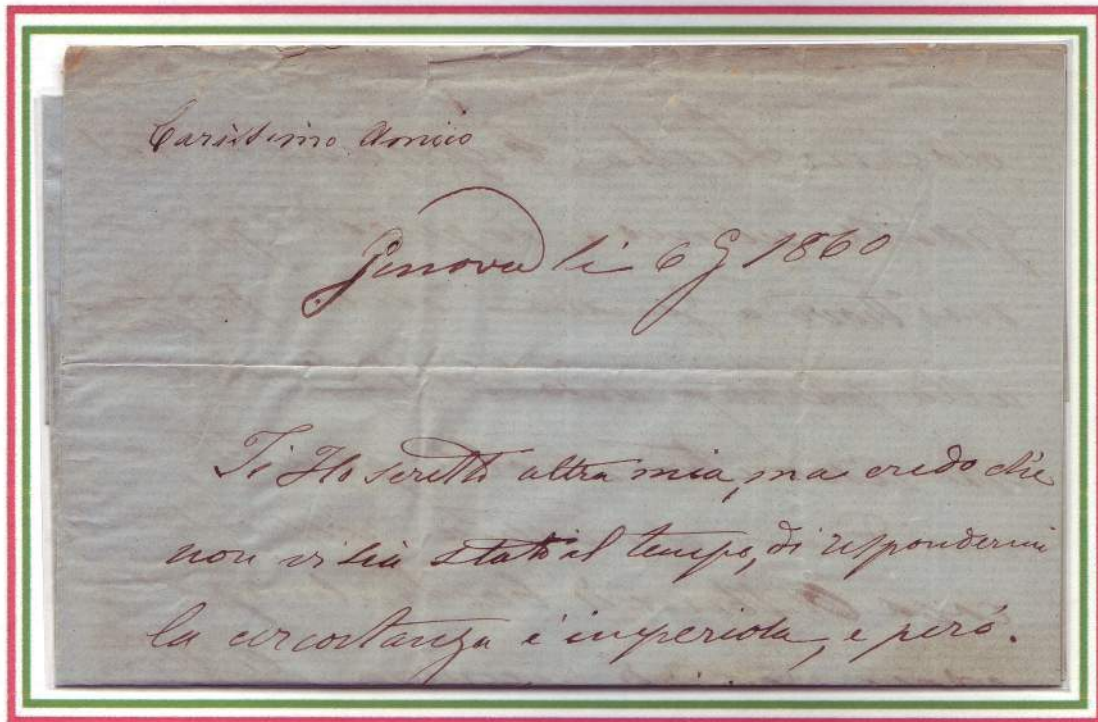 Carissimo Amico
Genova li 6 G 1860
Ti Ho scritto altra mia, ma credo che
non vi sia stato il tempo, di rispondermi
la circostanza è imperiosa, e però.